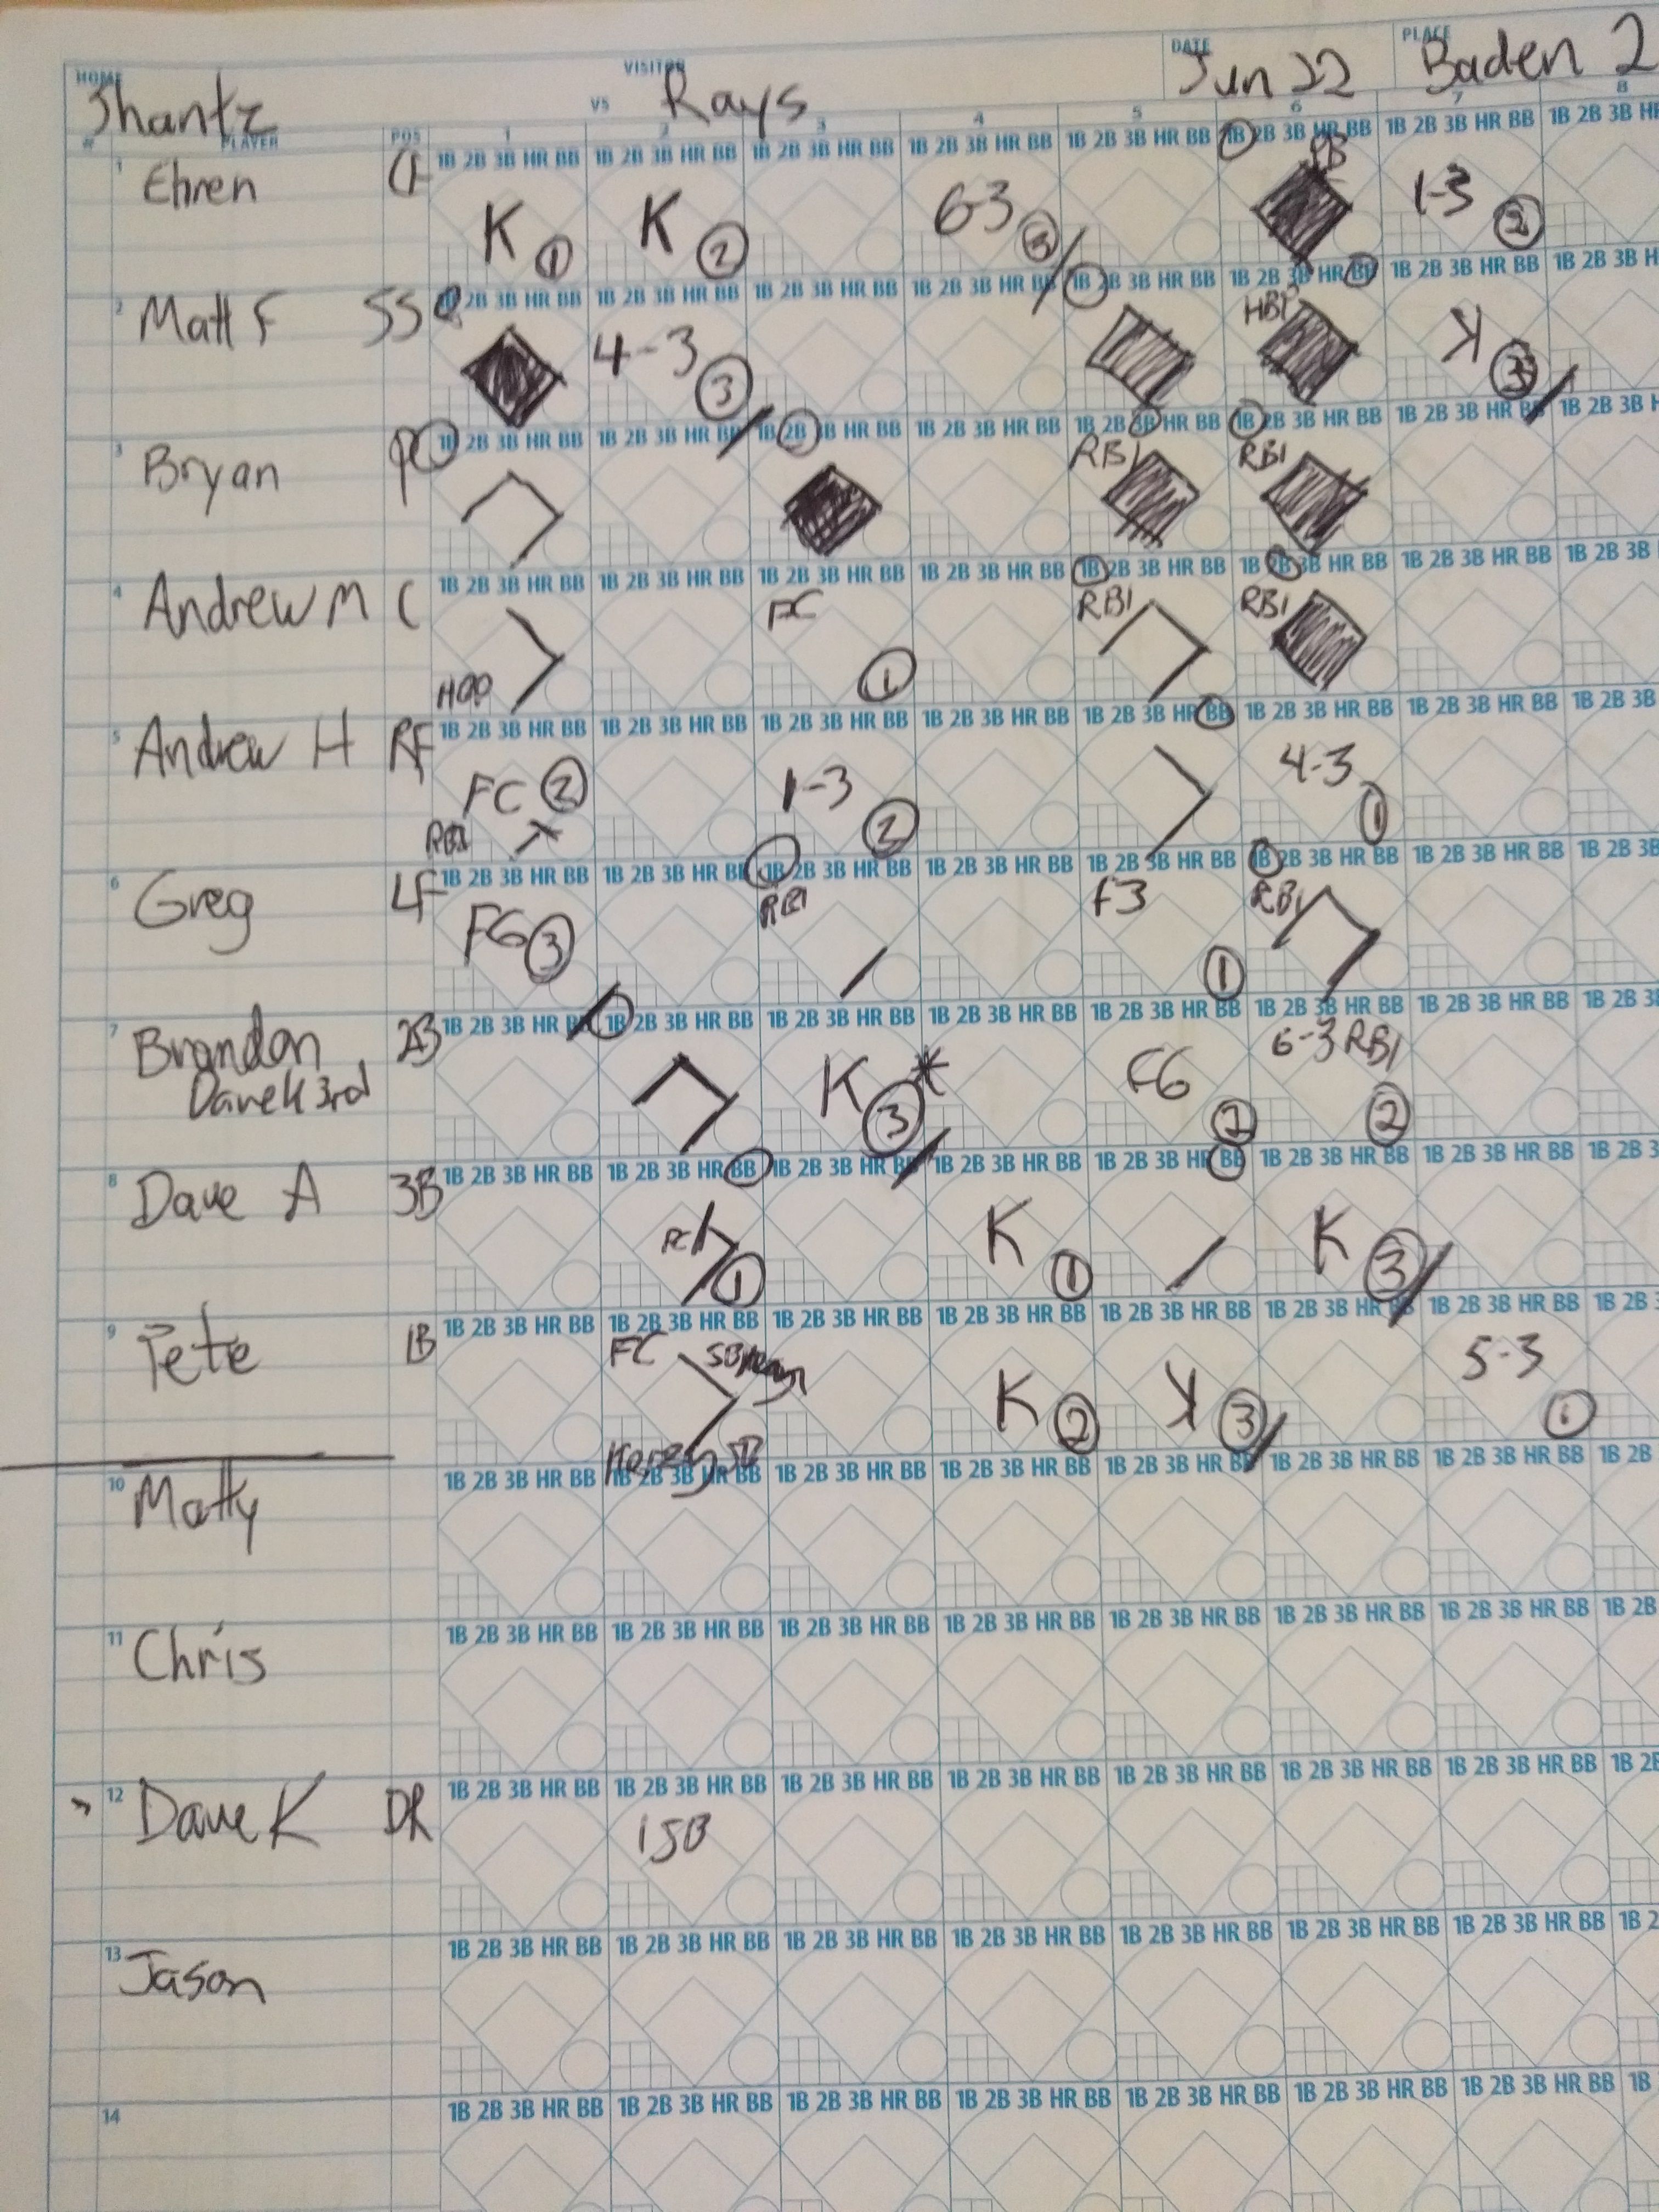 HOME VISITOR DATE PLACE
Shantz vs Rays Jun 22 Baden 2
# PLAYER POS 1 2 3 4 5 6 7 8
1B 2B 3B HR BB 1B 2B 3B HR BB 1B 2B 3B HR BB 1B 2B 3B HR BB 1B 2B 3B HR BB 1B 2B 3B HR BB 1B 2B 3B HR BB 1B 2B 3B HR
1 Ehren CF K 1 K 2 6-3 3 1-3 2
1B 2B 3B HR BB 1B 2B 3B HR BB 1B 2B 3B HR BB 1B 2B 3B HR BB 1B 2B 3B HR BB 1B 2B 3B HR BB 1B 2B 3B HR BB 1B 2B 3B H
2 Matt F SS 4-3 3 HBP K 3
1B 2B 3B HR BB 1B 2B 3B HR BB 1B 2B 3B HR BB 1B 2B 3B HR BB 1B 2B 3B HR BB 1B 2B 3B HR BB 1B 2B 3B HR BB 1B 2B 3B H
3 Bryan P RBI RBI
1B 2B 3B HR BB 1B 2B 3B HR BB 1B 2B 3B HR BB 1B 2B 3B HR BB 1B 2B 3B HR BB 1B 2B 3B HR BB 1B 2B 3B HR BB 1B 2B 3B
4 Andrew M C FC 1 RBI RBI
1B 2B 3B HR BB 1B 2B 3B HR BB 1B 2B 3B HR BB 1B 2B 3B HR BB 1B 2B 3B HR BB 1B 2B 3B HR BB 1B 2B 3B HR BB 1B 2B 3B
5 Andrew H RF FC 2 RBI 1-3 2 4-3 1
1B 2B 3B HR BB 1B 2B 3B HR BB 1B 2B 3B HR BB 1B 2B 3B HR BB 1B 2B 3B HR BB 1B 2B 3B HR BB 1B 2B 3B HR BB 1B 2B 3B
6 Greg LF F6 3 RBI F3 1 RBI
1B 2B 3B HR BB 1B 2B 3B HR BB 1B 2B 3B HR BB 1B 2B 3B HR BB 1B 2B 3B HR BB 1B 2B 3B HR BB 1B 2B 3B HR BB 1B 2B 3
7 Brandon 2B K 3 * F6 2 6-3 RBI 2
Dave K 3rd
1B 2B 3B HR BB 1B 2B 3B HR BB 1B 2B 3B HR BB 1B 2B 3B HR BB 1B 2B 3B HR BB 1B 2B 3B HR BB 1B 2B 3B HR BB 1B 2B 3
8 Dave A 3B FC 1 K 1 K 3
1B 2B 3B HR BB 1B 2B 3B HR BB 1B 2B 3B HR BB 1B 2B 3B HR BB 1B 2B 3B HR BB 1B 2B 3B HR BB 1B 2B 3B HR BB 1B 2B
9 Pete 1B FC K 2 K 3 5-3 1
1B 2B 3B HR BB 1B 2B 3B HR BB 1B 2B 3B HR BB 1B 2B 3B HR BB 1B 2B 3B HR BB 1B 2B 3B HR BB 1B 2B 3B HR BB 1B 2B
10 Matty
1B 2B 3B HR BB 1B 2B 3B HR BB 1B 2B 3B HR BB 1B 2B 3B HR BB 1B 2B 3B HR BB 1B 2B 3B HR BB 1B 2B 3B HR BB 1B 2B
11 Chris
1B 2B 3B HR BB 1B 2B 3B HR BB 1B 2B 3B HR BB 1B 2B 3B HR BB 1B 2B 3B HR BB 1B 2B 3B HR BB 1B 2B 3B HR BB 1B 2B
12 Dave K DR 1SB
1B 2B 3B HR BB 1B 2B 3B HR BB 1B 2B 3B HR BB 1B 2B 3B HR BB 1B 2B 3B HR BB 1B 2B 3B HR BB 1B 2B 3B HR BB 1B 2
13 Jason
1B 2B 3B HR BB 1B 2B 3B HR BB 1B 2B 3B HR BB 1B 2B 3B HR BB 1B 2B 3B HR BB 1B 2B 3B HR BB 1B 2B 3B HR BB 1B
14